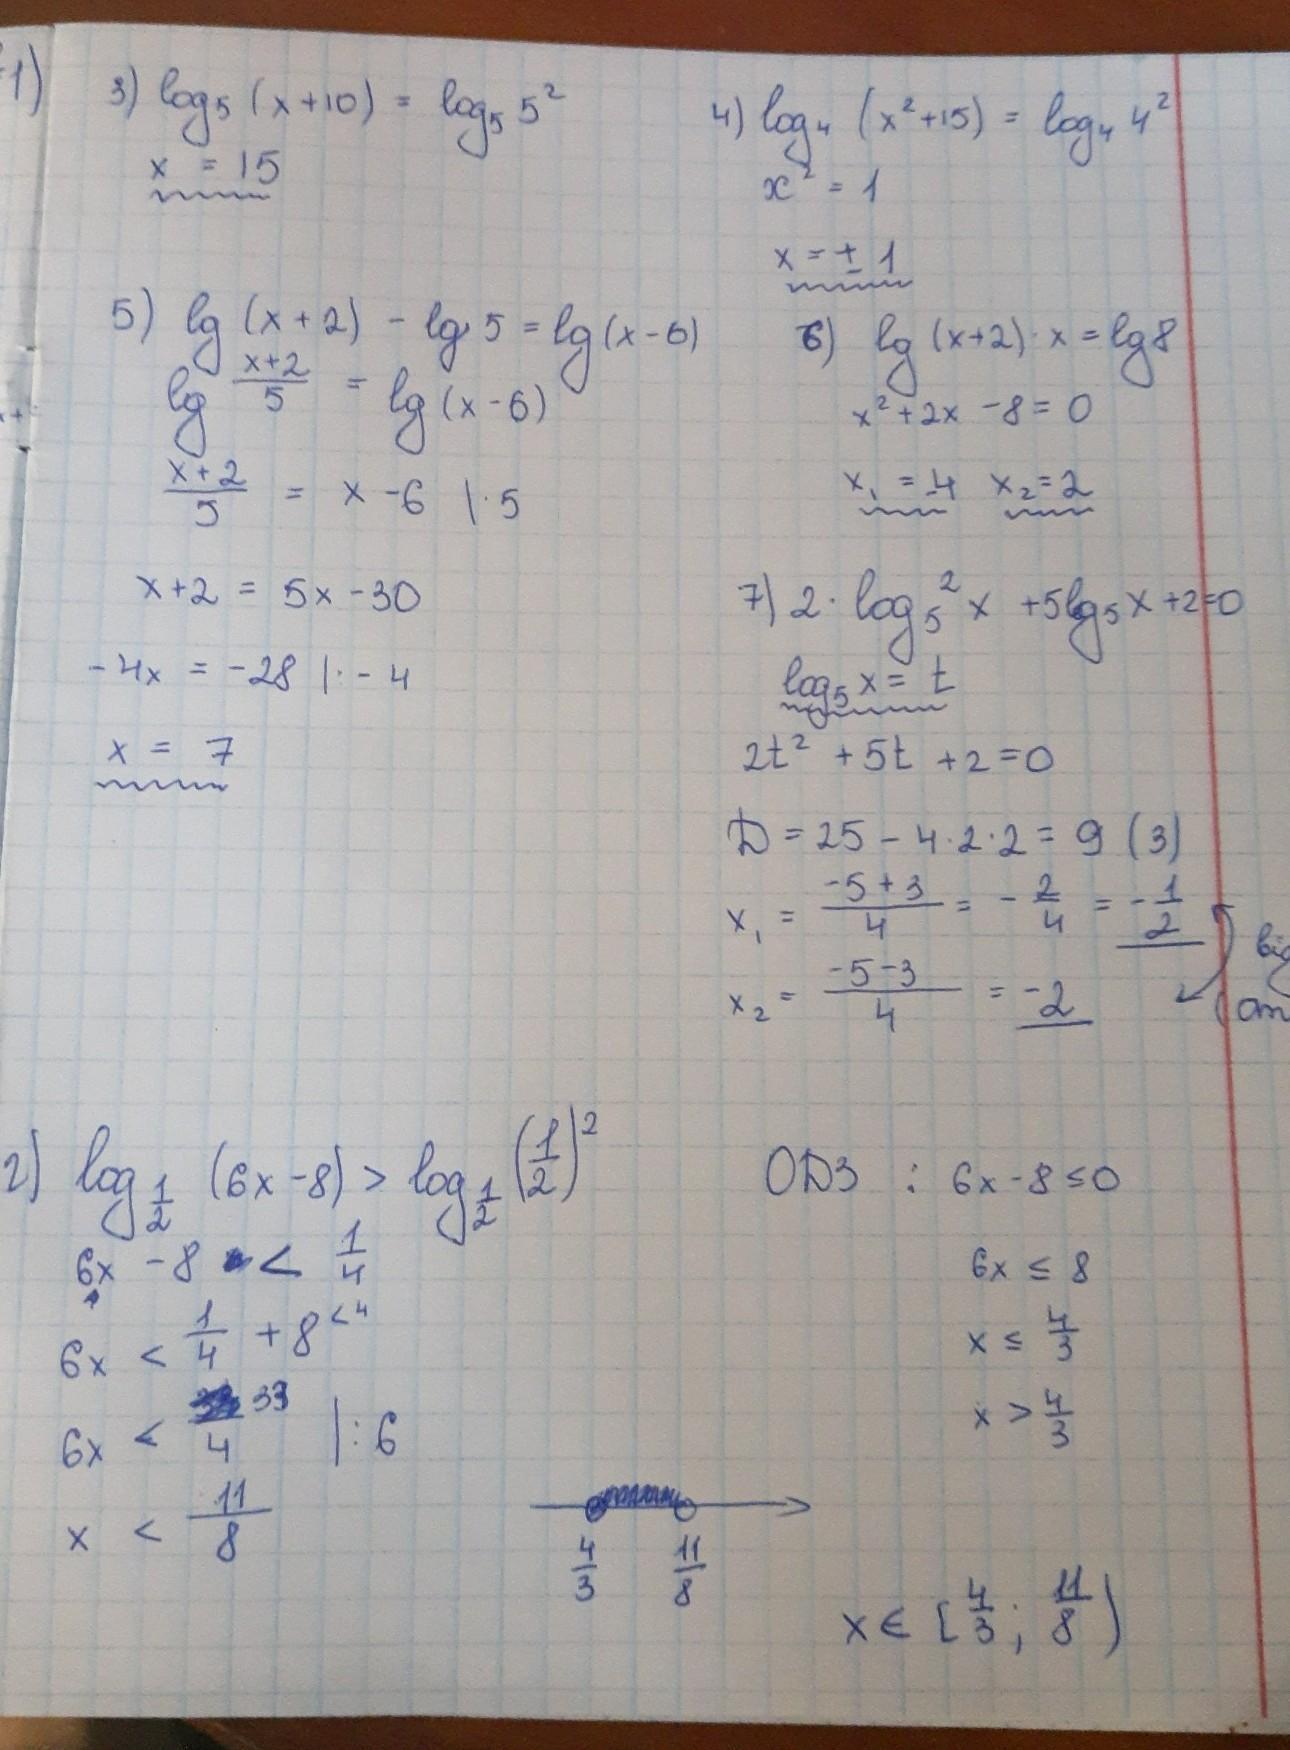 1)
3) log₅ (x+10) = log₅ 5²
x = 15
4) log₄ (x²+15) = log₄ 4²
x² = 1
x = ± 1
5) lg (x+2) - lg 5 = lg (x-6)
lg (x+2)/5 = lg (x-6)
(x+2)/5 = x - 6 |·5
x+2 = 5x - 30
-4x = -28 |: -4
x = 7
6) lg (x+2)·x = lg 8
x² + 2x - 8 = 0
x₁ = -4 x₂ = 2
7) 2·log₅² x + 5lg₅ x + 2 = 0
log₅ x = t
2t² + 5t + 2 = 0
D = 25 - 4·2·2 = 9 (3)
x₁ = (-5+3)/4 = -2/4 = -1/2
x₂ = (-5-3)/4 = -2
2) log_{1/2} (6x-8) > log_{1/2} (1/2)²
6x - 8 < 1/4
6x < 1/4 + 8 <4
6x < 33/4 |: 6
x < 11/8
ОДЗ : 6x-8 ≤ 0
6x ≤ 8
x ≤ 4/3
x > 4/3
4/3 11/8
x ∈ [4/3 ; 11/8)